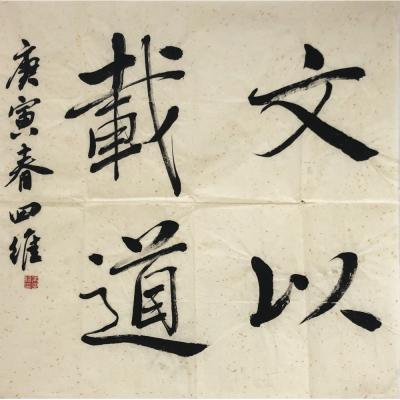 文以
載道
庚寅春四維